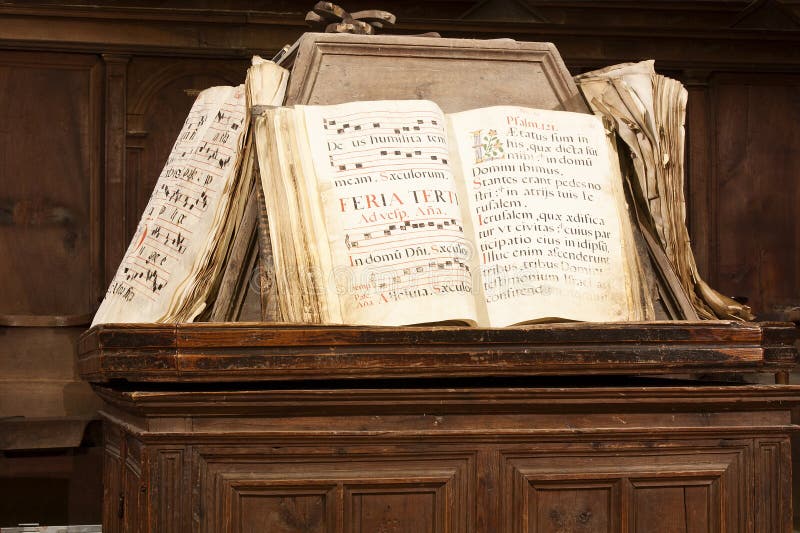 De us humilita tem
meam. Sæculorum.
FERIA TERTI
Ad vesp. Aña.
In domũ Dñi. Sæcul
Pasc.
Aña Alleluia. Sæculorum
Psalm. 121.
Lætatus sum in
his, quæ dicta sunt
mihi, in domũ
Domini ibimus.
Stantes erant pedes no
stri, in atrijs tuis Ie
rusalem.
Ierusalem, quæ ædifica
tur vt civitas, cuius par
ticipatio eius in idipsũ.
Illuc enim ascenderunt
tribus, tribus Domini
testimonium Israel ad
confitend